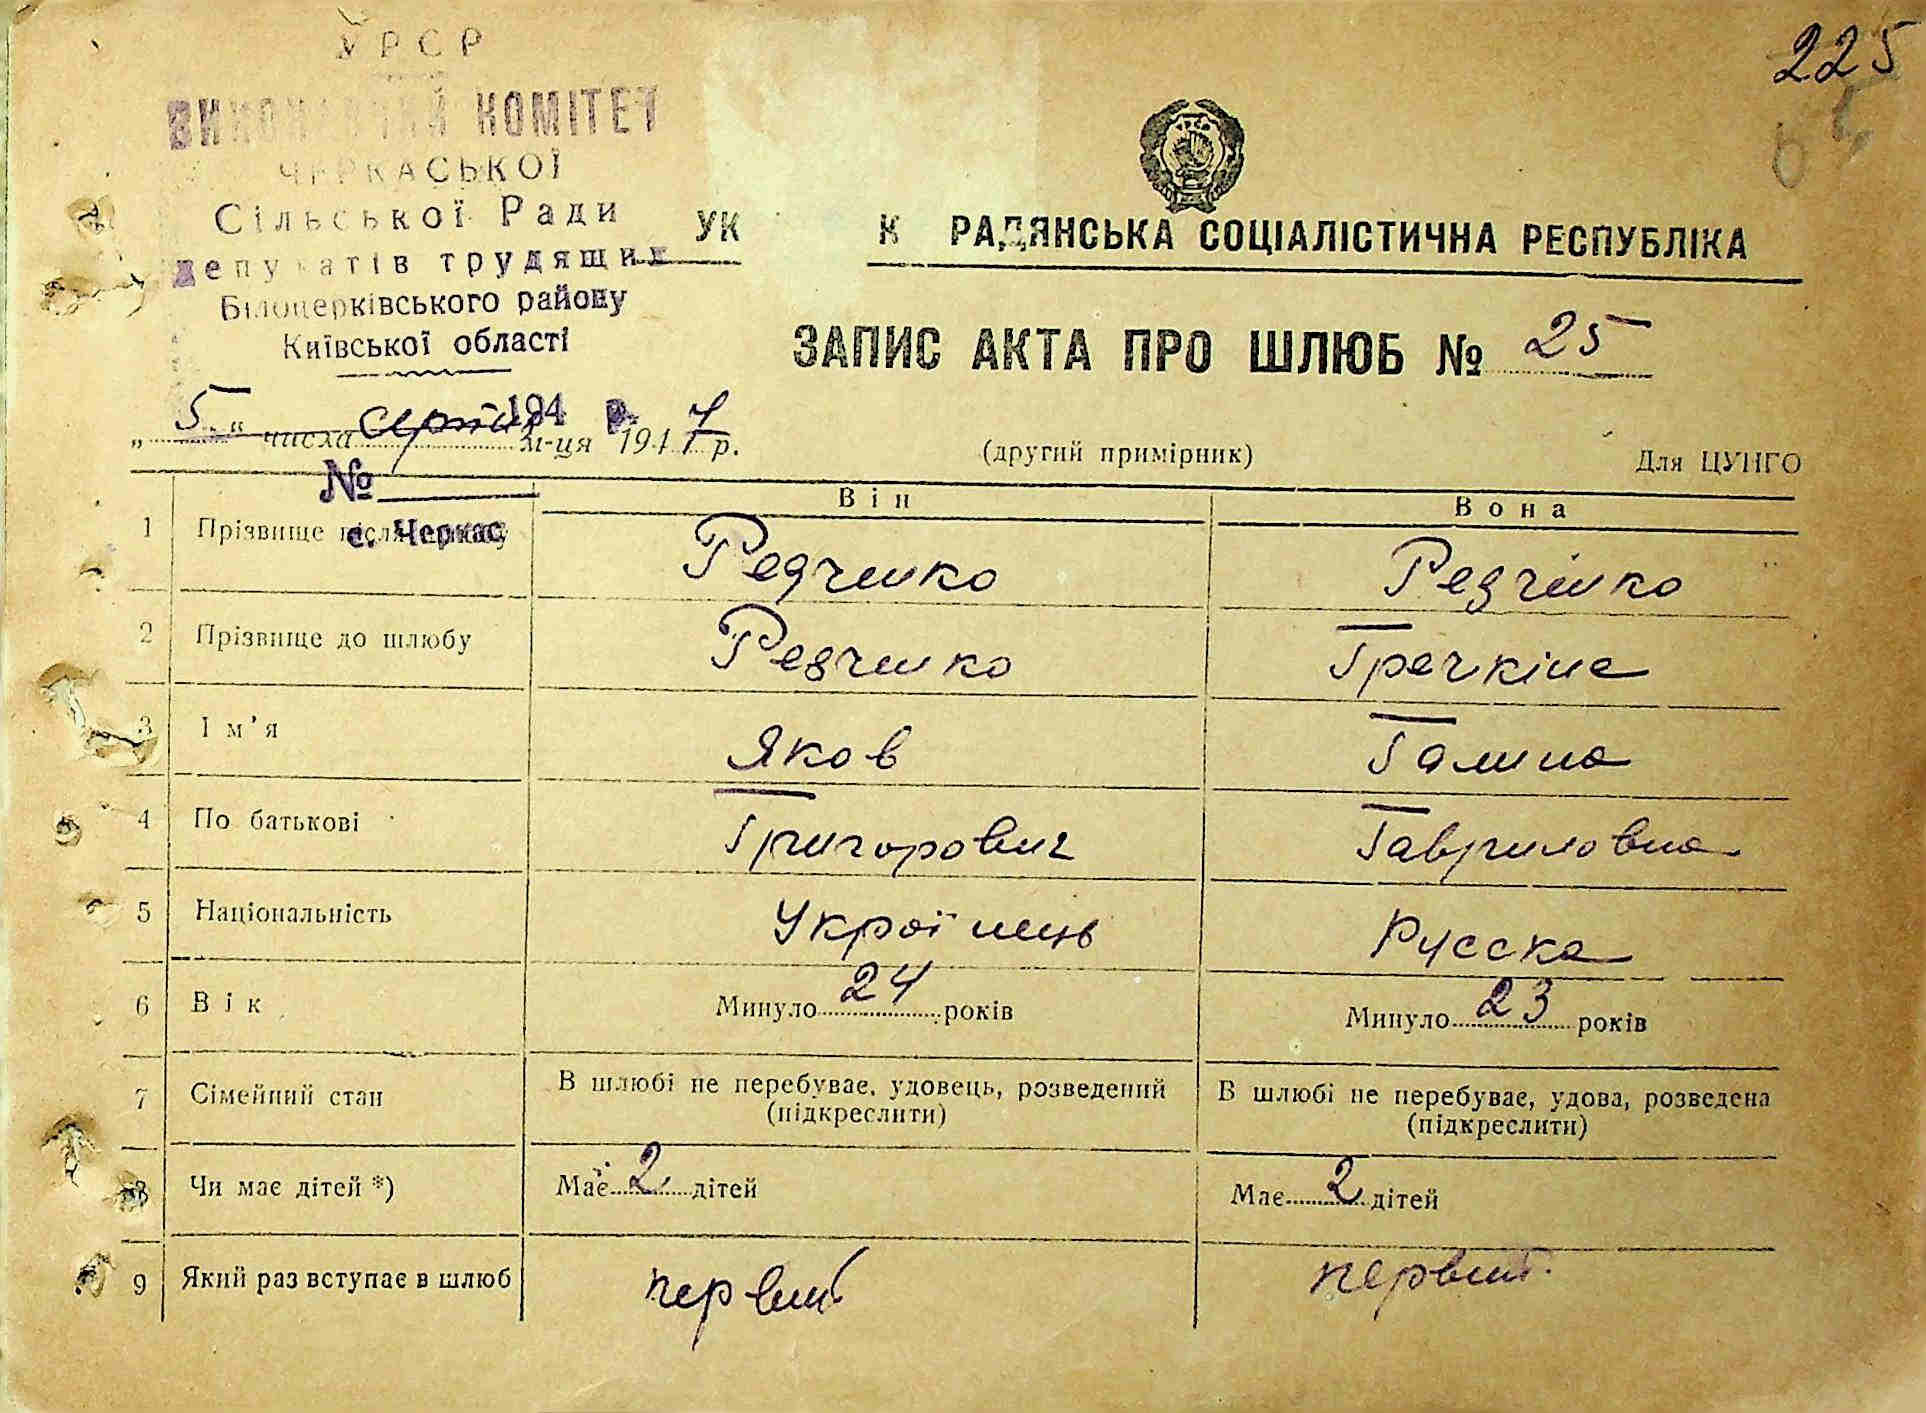 225
УРСР
ВИКОНАВЧИЙ КОМІТЕТ
ЧЕРКАСЬКОЇ
Сільської Ради
депутатів трудящих
Білоцерківського району
Київської області
194 р.
№
с. Черкас
УК К РАДЯНСЬКА СОЦІАЛІСТИЧНА РЕСПУБЛІКА
ЗАПИС АКТА ПРО ШЛЮБ № 25
„5“ числа серпня м-ця 1947 р.
(другий примірник)
Для ЦУНГО
Він Вона
1 Прізвище після шлюбу Редченко Редченко
2 Прізвище до шлюбу Редченко Гречкіна
3 Ім'я Яков Галина
4 По батькові Григорович Гавриловна
5 Національність Українець Русска
6 Вік Минуло 24 років Минуло 23 років
7 Сімейний стан В шлюбі не перебуває, удовець, розведений В шлюбі не перебуває, удова, розведена
(підкреслити) (підкреслити)
8 Чи має дітей *) Має 2 дітей Має 2 дітей
9 Який раз вступає в шлюб первий первий